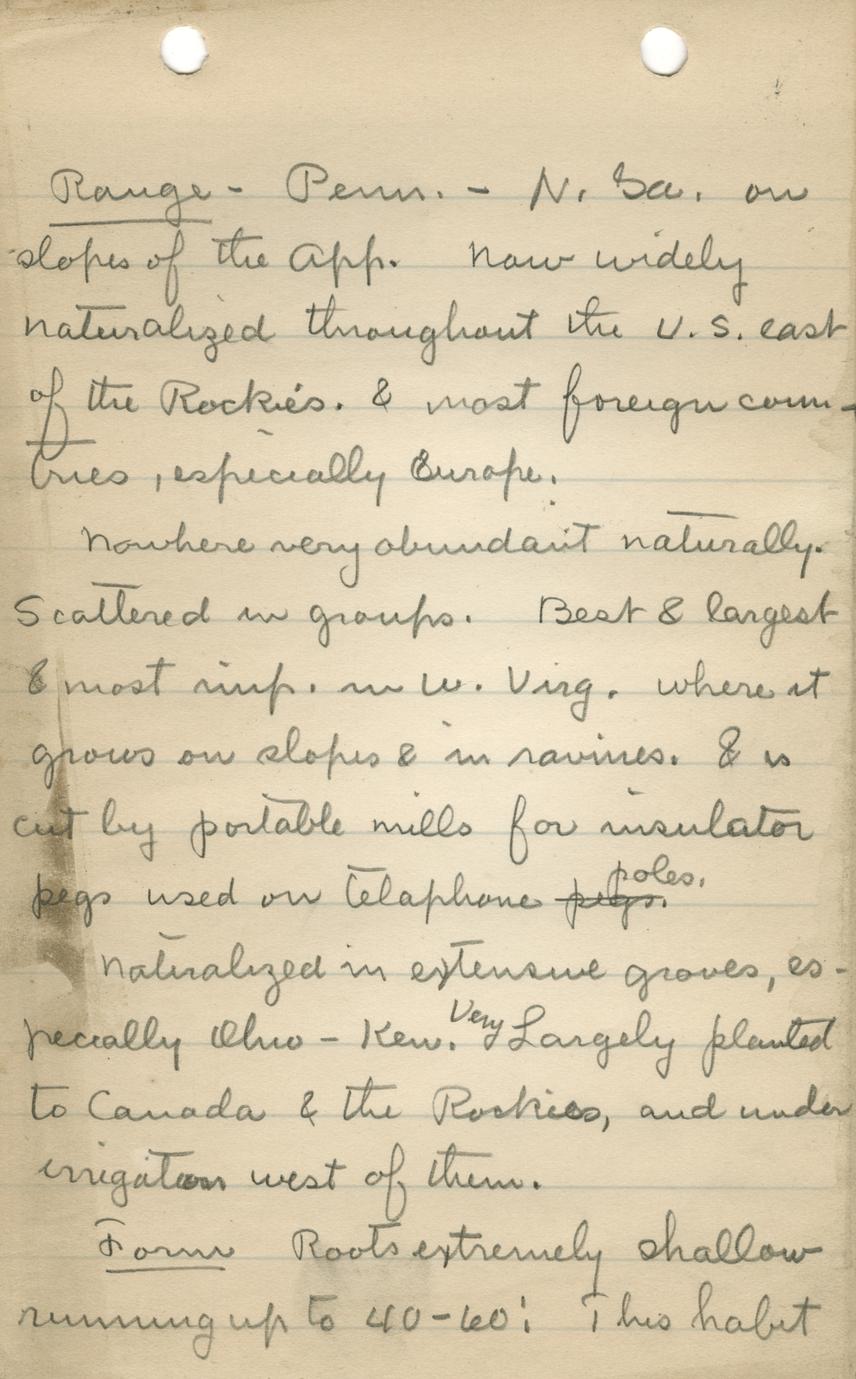 Range - Penn. - N. Ga. on
slopes of the App. Now widely
naturalized throughout the U.S. east
of the Rockies. & most foreign coun-
tries, especially Europe.
Nowhere very abundant naturally.
Scattered in groups. Best & largest
& most imp. in W. Virg. where it
grows on slopes & in ravines. & is
cut by portable mills for insulator
pegs used on telaphone pegs. poles.
Naturalized in extensive groves, es-
pecially Ohio - Ken. Very Largely planted
to Canada & the Rockies, and under
irrigation west of them.
Form Roots extremely shallow
running up to 40-60'. This habit